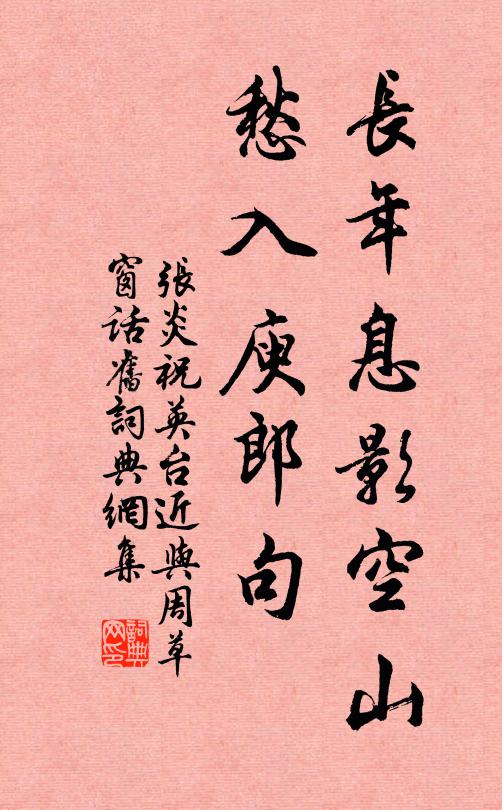 長年息影空山
愁入庾郎句
張炎祝英台近與周草
窗話舊詞典網集
詞典網印